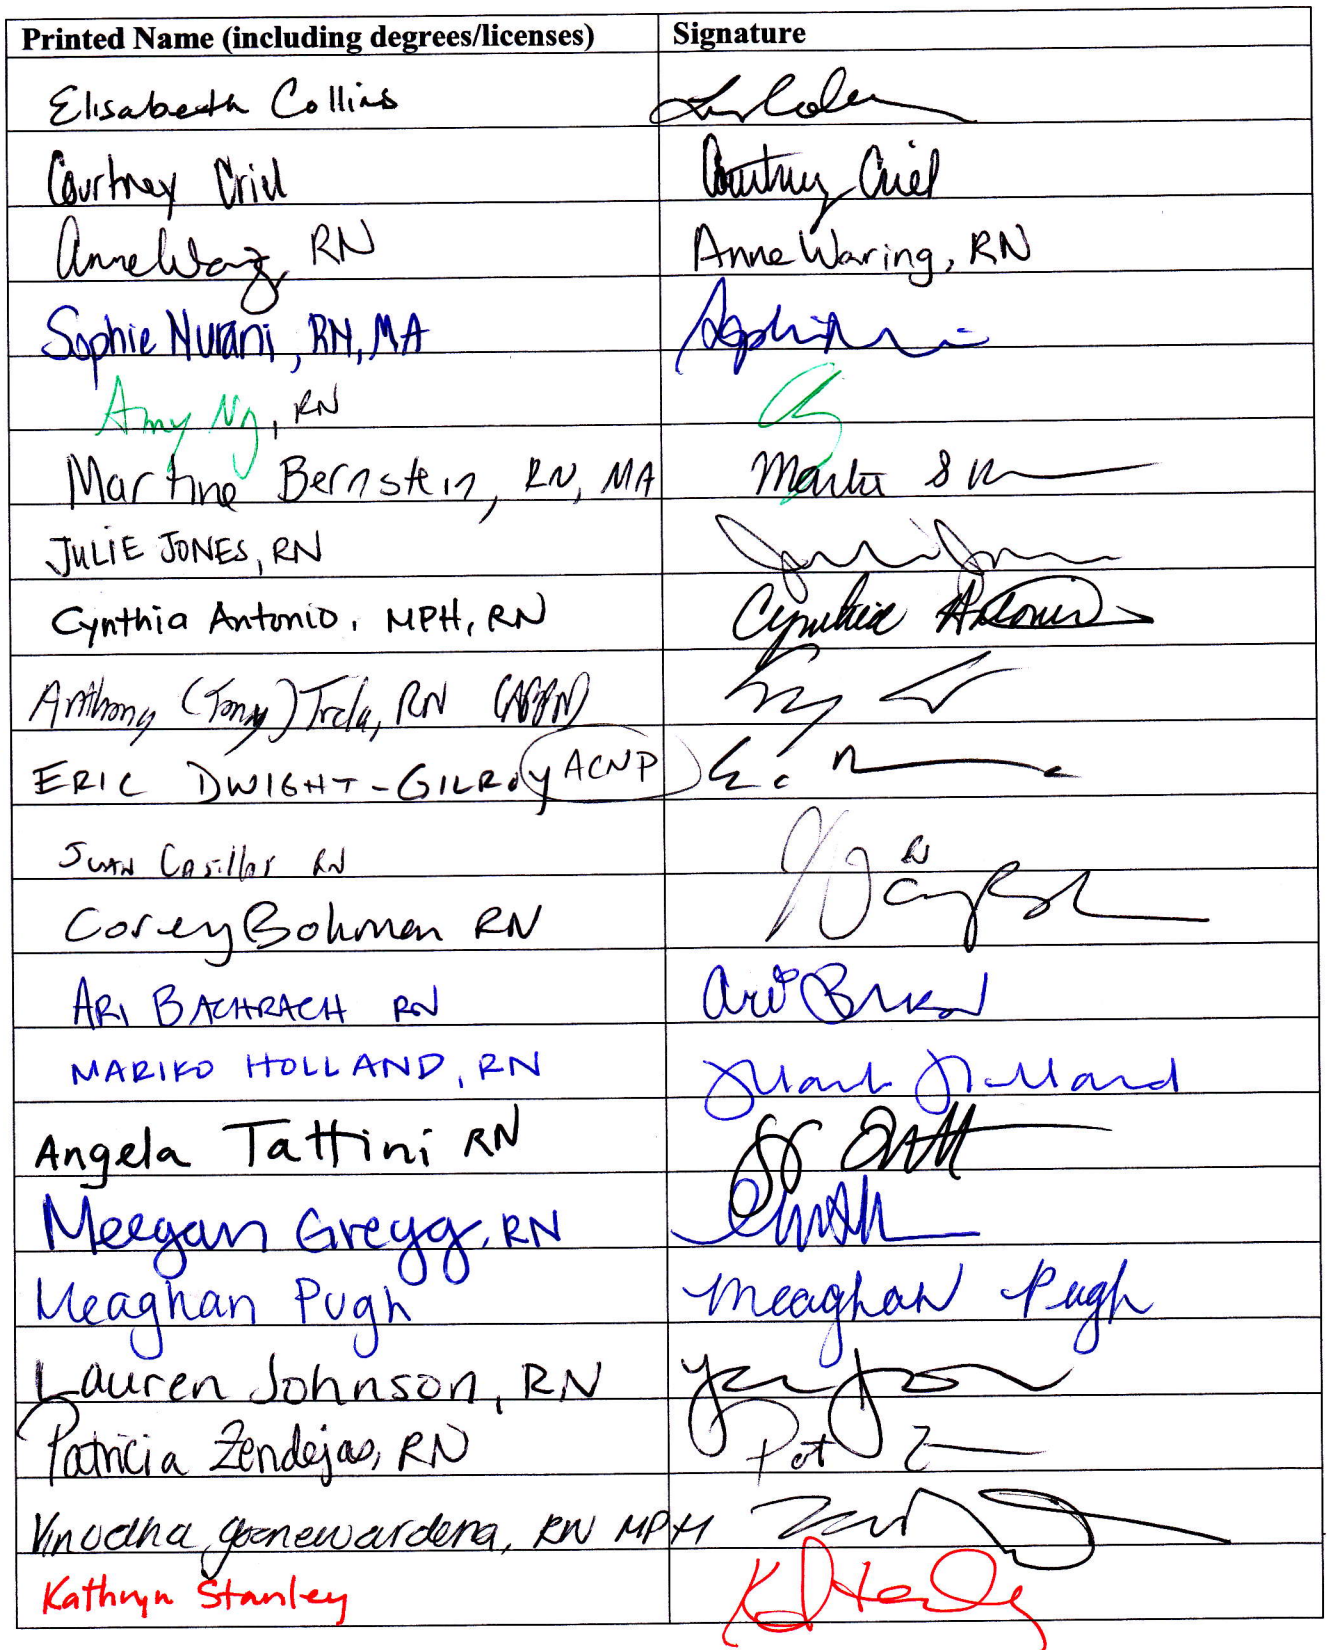 Printed Name (including degrees/licenses) Signature
Elisabeth Collins
Courtney Criel Courtney Criel
Anne Waring, RN Anne Waring, RN
Sophie Nurani, RN, MA Sophie
Amy Ng, RN
Martine Bernstein, RN, MA
JULIE JONES, RN
Cynthia Antonio, MPH, RN Cynthia Antonio
Anthony (Tony) Trela, RN
ERIC DWIGHT-GILROY ACNP
JUAN Casillas RN RN
Corey Bohman RN
ARI BACHRACH RN Ari
MARIKO HOLLAND, RN Holland
Angela Tattini RN
Meegan Gregg, RN
Meaghan Pugh Meaghan Pugh
Lauren Johnson, RN
Patricia Zendejas, RN Pat Z
Vinodha Goonewardena, RN MPH
Kathryn Stanley